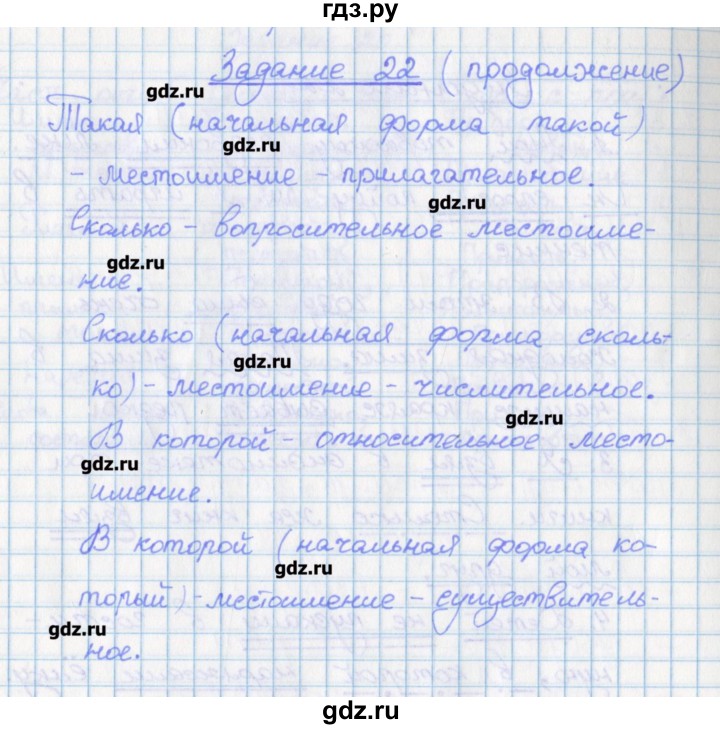 гдз.ру
Задание 22 (продолжение)
gdz.ru
Такая (начальная форма такой)
gdz.ru
- местоимение - прилагательное.
gdz.ru
Сколько - вопросительное местоиме-
gdz.ru
ние.
Сколько (начальная форма сколь-
gdz.ru
ко) - местоимение - числительное.
gdz.ru
В которой - относительное место-
gdz.ru
имение.
В которой (начальная форма ко-
gdz.ru
торый) - местоимение - существитель-
gdz.ru
ное.
gdz.ru